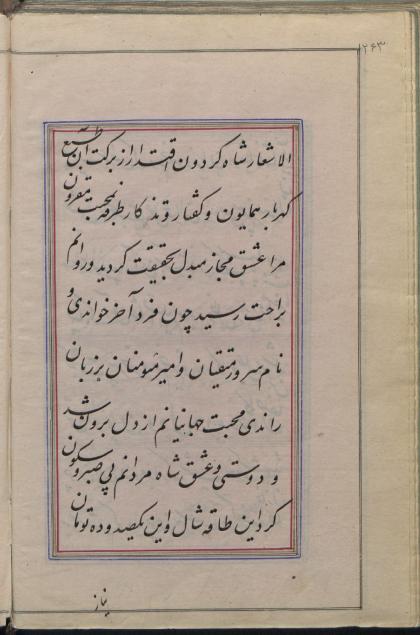 ۲۶۳
الاشعار شاه کردون اقتدار از برکت این طبع
کهربار همایون و کفتار قند کار طرفه بمحبت مقرون
مرا عشق مجاز مبدل بحقیقت کردید و روانم
براحت رسید چون فرد آخر خواندی و
نام سرور متقیان و امیر مؤمنان بر زبان
راندی محبت جهانیانم از دل برون شد
و دوستی و عشق شاه مردانم پی صبر و سکون
کرد این طاقه شال و این یکصد و ده تومان
نیاز